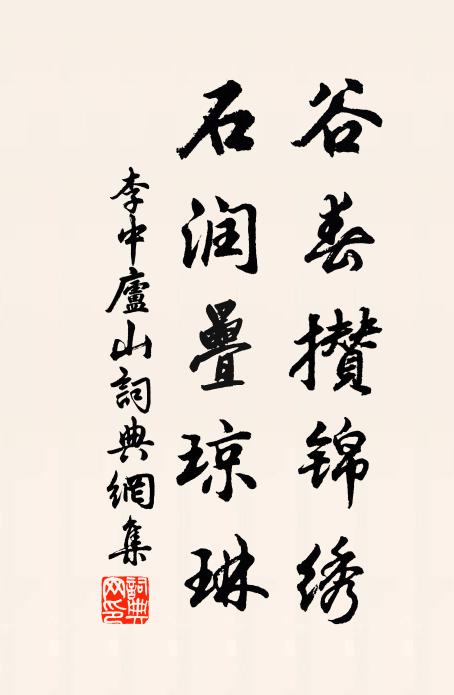 谷春攒锦绣
石润疊琼琳
李中廬山詞典網集
詞典网印